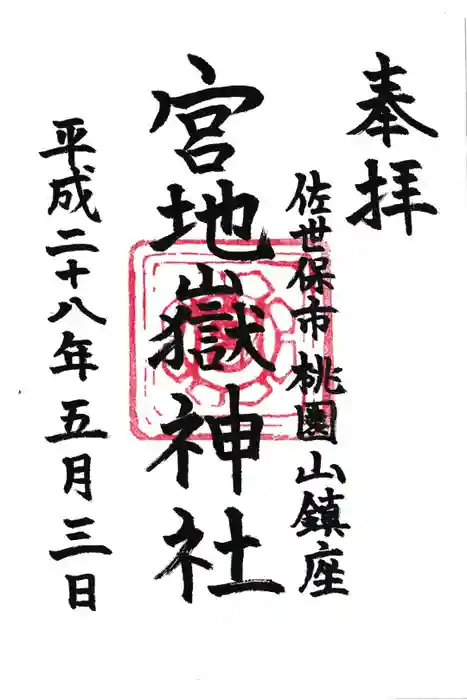 奉拝
佐世保市桃園山鎮座
宮地嶽神社
平成二十八年五月三日